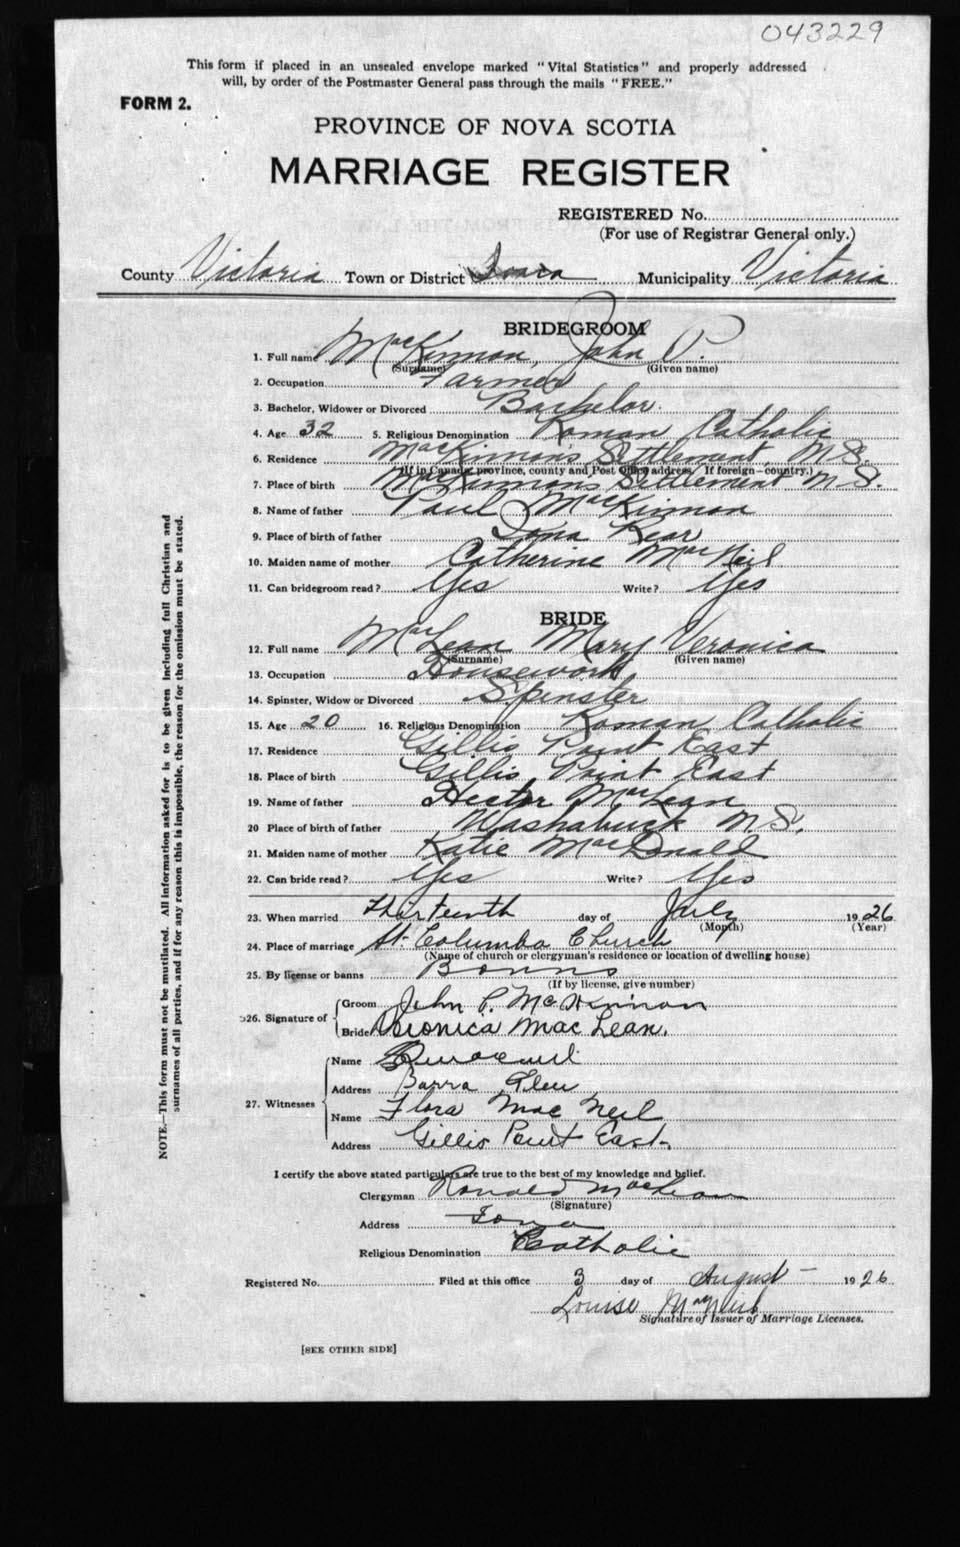 043229
This form if placed in an unsealed envelope marked "Vital Statistics" and properly addressed
will, by order of the Postmaster General pass through the mails "FREE."
FORM 2.
PROVINCE OF NOVA SCOTIA
MARRIAGE REGISTER
REGISTERED No.
(For use of Registrar General only.)
County Victoria Town or District Iona Municipality Victoria
BRIDEGROOM
1. Full name MacKinnon, John P.
(Surname) (Given name)
2. Occupation Farmer
3. Bachelor, Widower or Divorced Bachelor.
4. Age 32 5. Religious Denomination Roman Catholic
6. Residence MacKinnons Settlement, N.S.
(If in Canada, province, county and Post Office address. If foreign—country.)
7. Place of birth MacKinnons Settlement N.S.
8. Name of father Paul MacKinnon
9. Place of birth of father Iona Rear
10. Maiden name of mother Catherine MacNeil
11. Can bridegroom read? Yes Write? Yes
BRIDE
12. Full name MacLean Mary Veronica
(Surname) (Given name)
13. Occupation Housework
14. Spinster, Widow or Divorced Spinster
15. Age 20 16. Religious Denomination Roman Catholic
17. Residence Gillis Point East
18. Place of birth Gillis Point East
19. Name of father Hector MacLean
20 Place of birth of father Washabuck N.S.
21. Maiden name of mother Katie MacDonald
22. Can bride read? Yes Write? Yes
23. When married Thirteenth day of July 1926
(Month) (Year)
24. Place of marriage St. Columba Church
(Name of church or clergyman's residence or location of dwelling house)
25. By license or banns Banns
(If by license, give number)
26. Signature of Groom John P. McKinnon
Bride Veronica MacLean.
27. Witnesses Name
Address Barra Glen
Name Flora MacNeil
Address Gillis Point East.
I certify the above stated particulars are true to the best of my knowledge and belief.
Clergyman Ronald MacLean
(Signature)
Address Iona
Religious Denomination Catholic
Registered No. Filed at this office 3 day of August 1926
Louise MacNeil
Signature of Issuer of Marriage Licenses.
[SEE OTHER SIDE]
NOTE.—This form must not be mutilated. All information asked for is to be given including full Christian and
surnames of all parties, and if for any reason this is impossible, the reason for the omission must be stated.